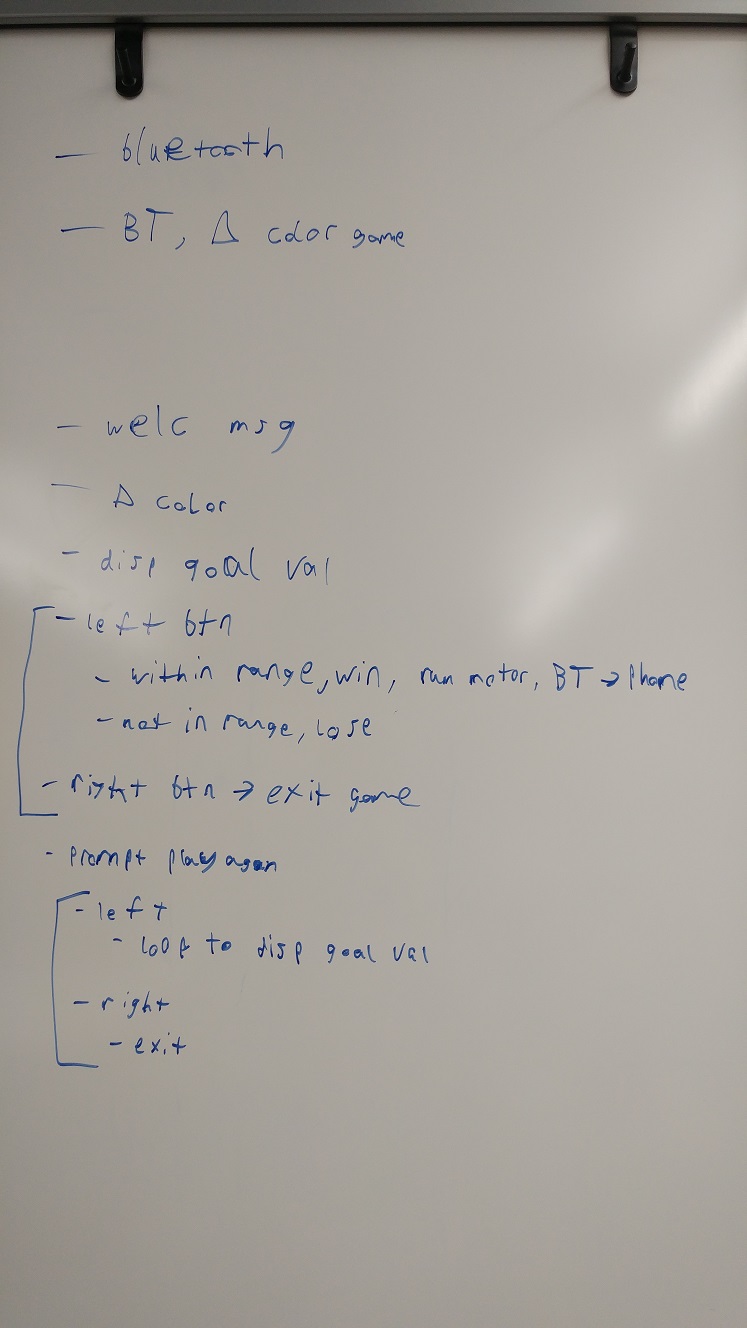 — bluetooth
— BT, Δ color game
- welc msg
- Δ color
- disp goal val
- left btn
- within range, win, run motor, BT → Phone
- not in range, lose
- right btn → exit game
- Prompt play again
- left
- loop to disp goal val
- right
- exit